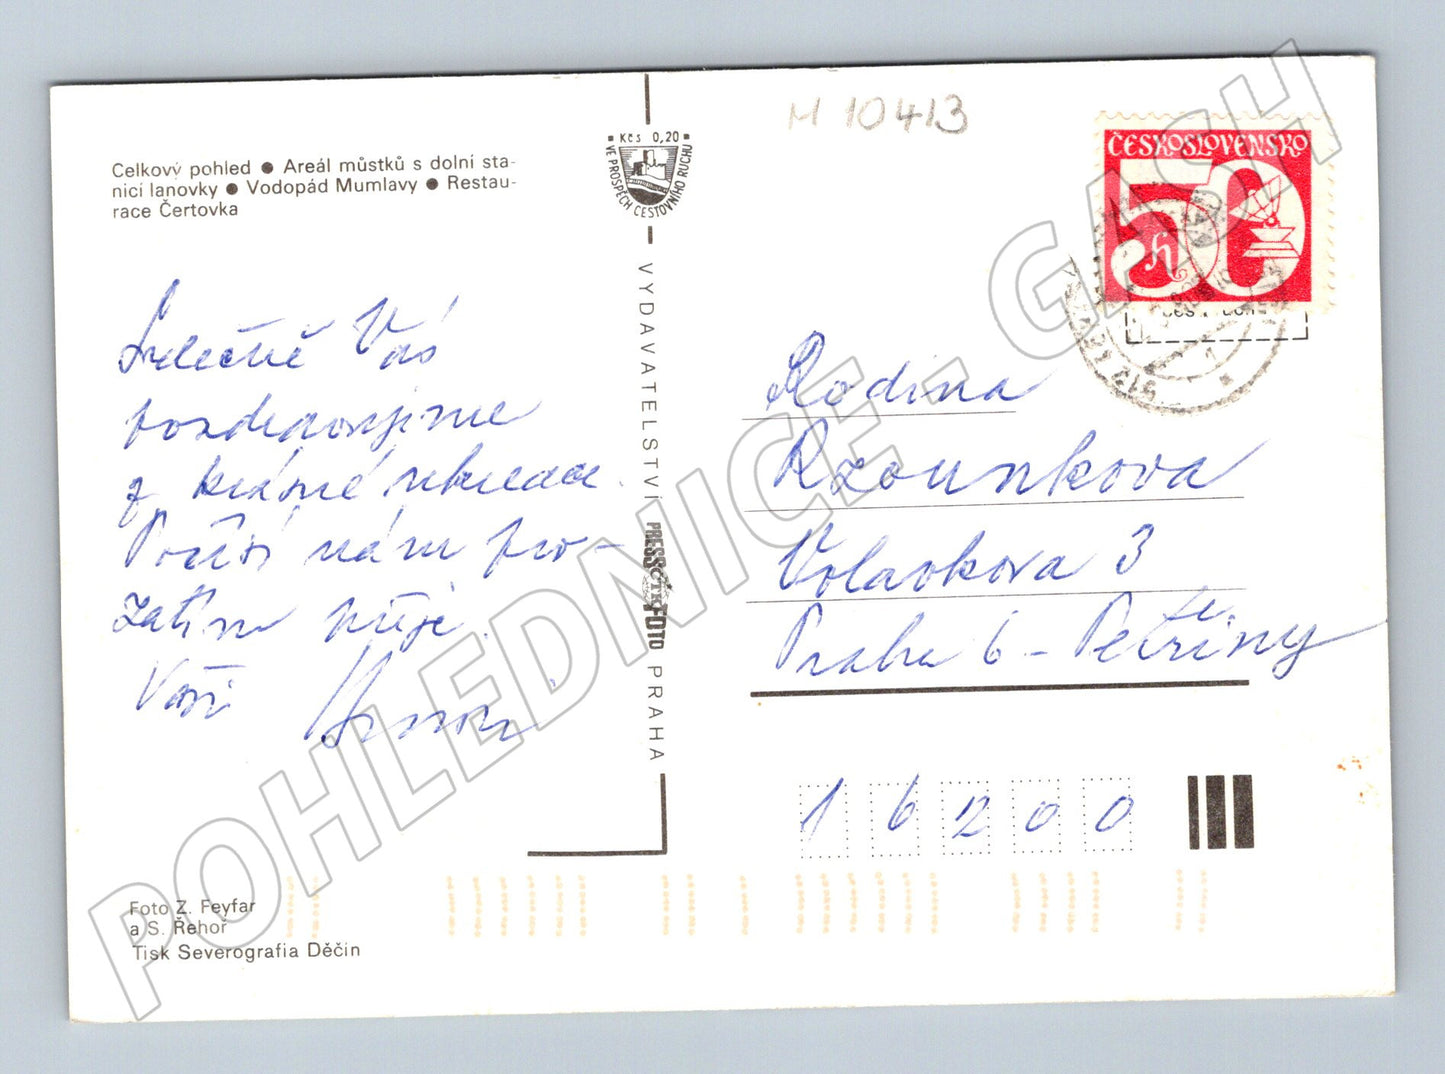 M 10413
Celkový pohled ● Areál můstků s dolní sta-
nicí lanovky ● Vodopád Mumlavy ● Restau-
race Čertovka
Kčs 0,20
VE PROSPĚCH CESTOVNÍHO RUCHU
ČESKOSLOVENSKO
50
512
Srdečně Vás
pozdravujeme
z krásné rekreace.
Počasí nám pro-
zatím přeje.
Vaši
VYDAVATELSTVÍ PRESSFOTO PRAHA
ČTK
Rodina
Rzounkova
Volavkova 3
Praha 6 - Petřiny
16200
Foto Z. Feyfar
a S. Řehor
Tisk Severografia Děčín
POHLEDNICE - GASH